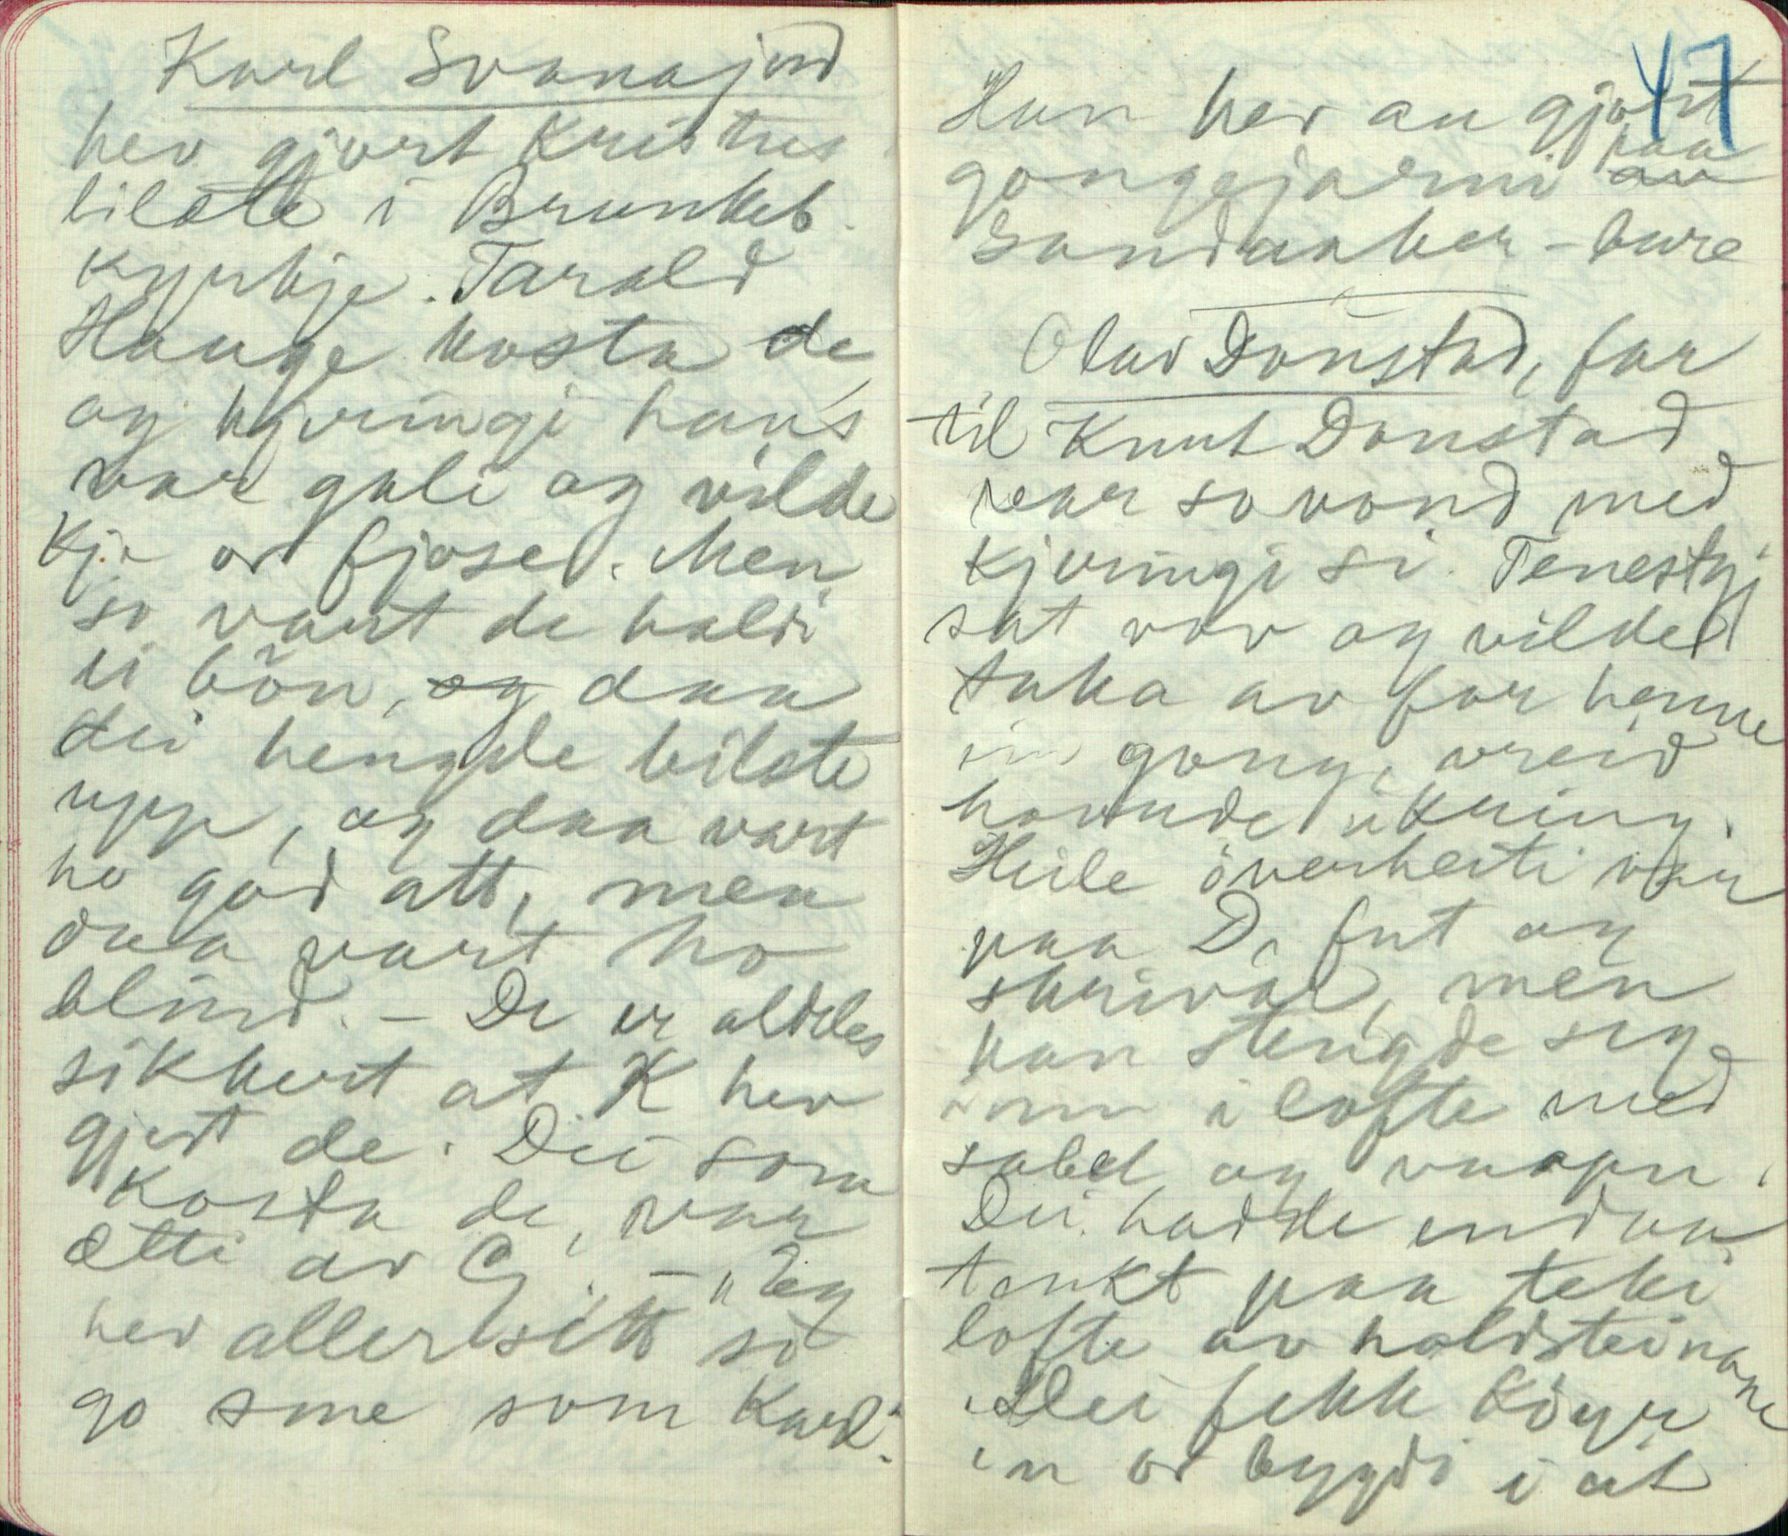 Karl Svanajord
hev gjort Kristus
bilete i Brunkeb.
kyrkje. Tarald
Hauge kosta de
og kjeringi hans
var gali og vilde
kje or fjose. Men
so vart de haldi
ei bön, og daa
dei hengde bilete
upp, og daa vart
ho god att, men
daa vart ho
blind. – De er aldeles
sikkert at K hev
gjort de. Dei som
kosta de, var
ætti av G. – "Eg
hev aller sitt so
go sme som Karl."
47
Han hev au gjort
gongejarni paa
av
Sandaaker – bure
Olav Donstad, far
til Knut Donstad
var so vond med
kjeringi si. Tenestgj
sat vov og vilde
taka av for henne
ein gong, vreid
hovude ikring.
Heile överheiti var
paa D, fut og
skrivar, men
han stengde seg
inn i lofte med
sabel og vaapn.
Dei hadde endaa
tenkt paa teki
lofte av holdsteinane
Dei fekk
ein or bygdi i at